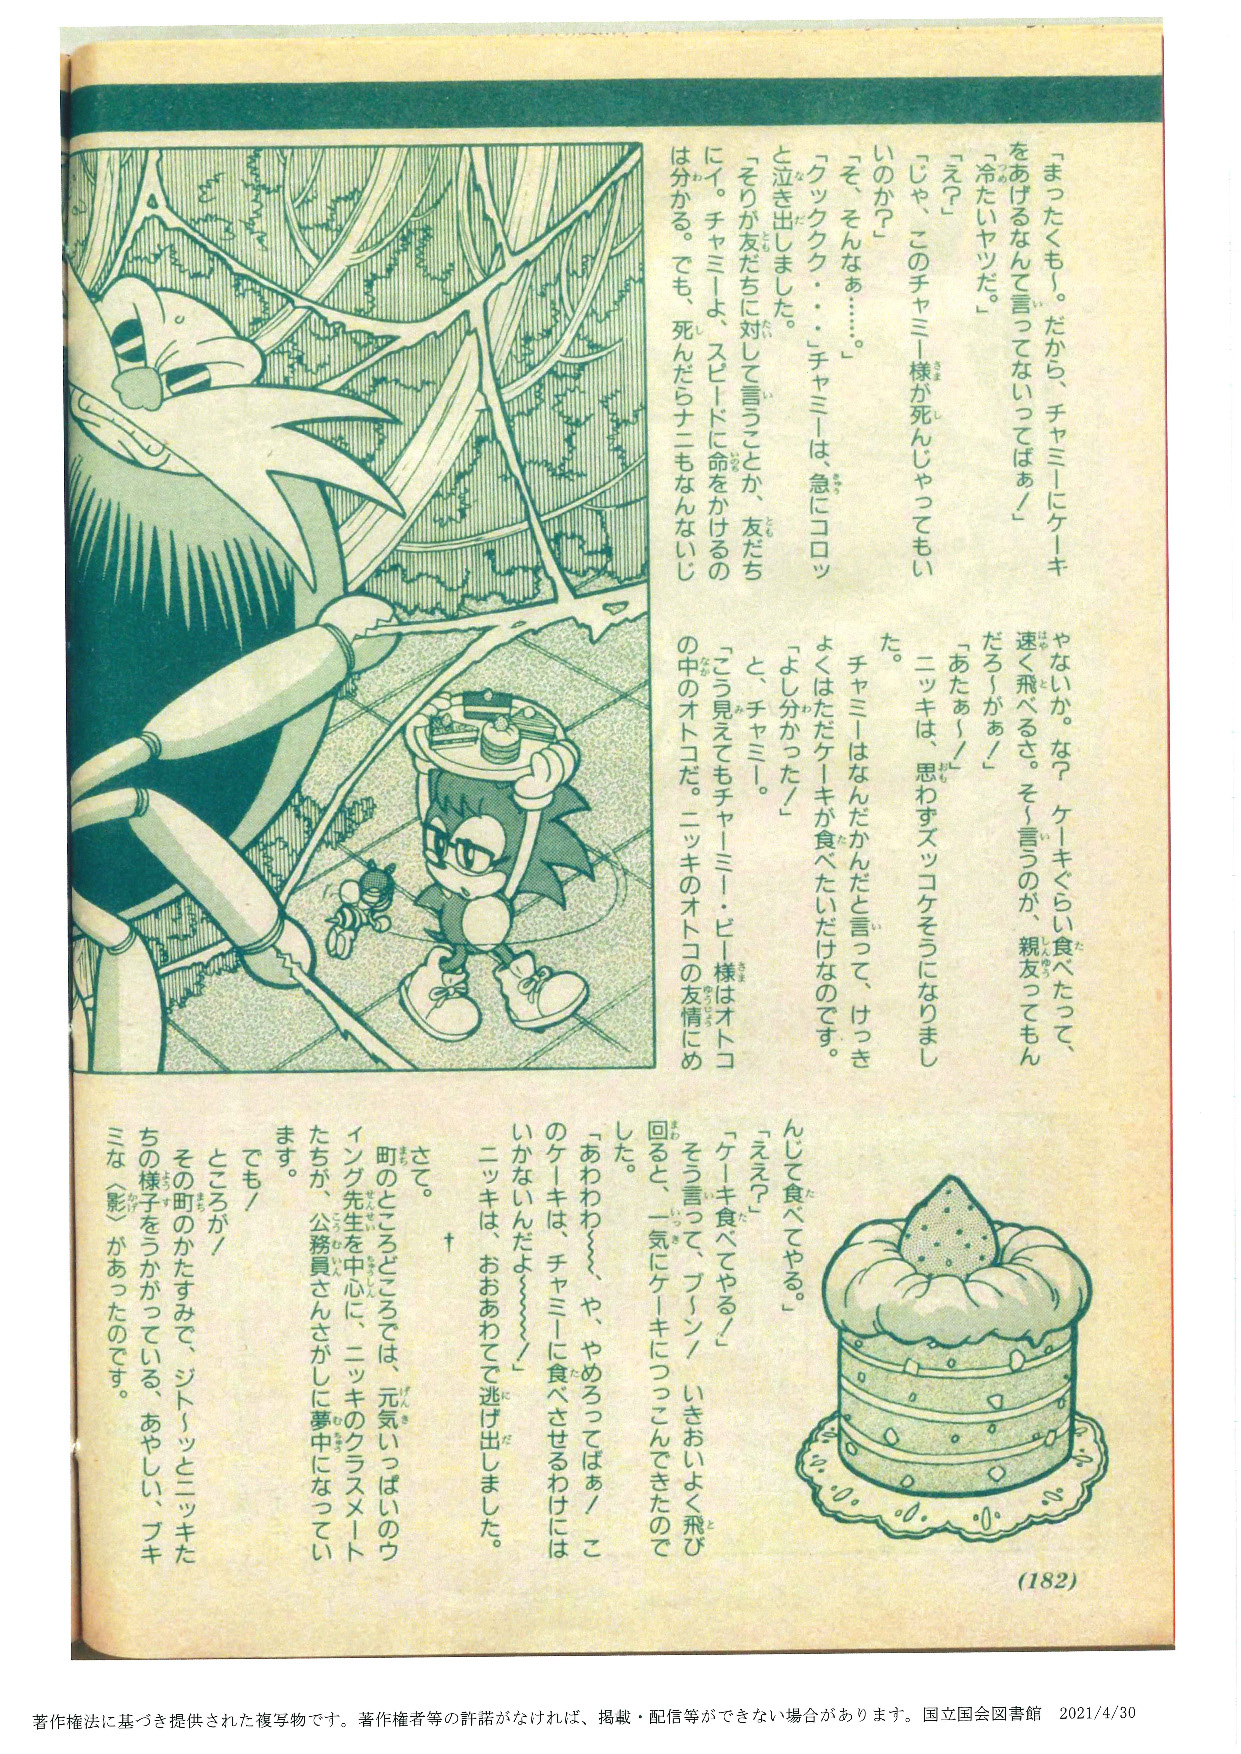 「まったくも〜。だから、チャミーにケーキ
をあげるなんて言ってないってばぁ！」
「冷たいヤツだ。」
「え？」
「じゃ、このチャミー様が死んじゃってもい
いのか？」
「そ、そんなぁ……。」
「クッククク・・・」チャミーは、急にコロッ
と泣き出しました。
「そりが友だちに対して言うことか、友だち
にイ。チャミーよ、スピードに命をかけるの
は分かる。でも、死んだらナニもなんないじ
ゃないか。な？　ケーキぐらい食べたって、
速く飛べるさ。そ〜言うのが、親友ってもん
だろ〜がぁ！」
「あたぁ〜！」
ニッキは、思わずズッコケそうになりまし
た。
チャミーはなんだかんだと言って、けっき
よくはただケーキが食べたいだけなのです。
「よし分かった！」
と、チャミー。
「こう見えてもチャーミー・ビー様はオトコ
の中のオトコだ。ニッキのオトコの友情にめ
んじて食べてやる。」
「ええ？」
「ケーキ食べてやる！」
そう言って、ブ〜ン！　いきおいよく飛び
回ると、一気にケーキにつっこんできたので
した。
「あわわわ〜〜〜、や、やめろってばぁ！　こ
のケーキは、チャミーに食べさせるわけには
いかないんだよ〜〜〜〜！」
ニッキは、おおあわてで逃げ出しました。
†
さて。
町のところどころでは、元気いっぱいのウ
ィング先生を中心に、ニッキのクラスメート
たちが、公務員さんさがしに夢中になってい
ます。
でも！
ところが！
その町のかたすみで、ジト〜ッとニッキた
ちの様子をうかがっている、あやしい、ブキ
ミな〈影〉があったのです。
(182)
著作権法に基づき提供された複写物です。著作権者等の許諾がなければ、掲載・配信等ができない場合があります。国立国会図書館　2021/4/30